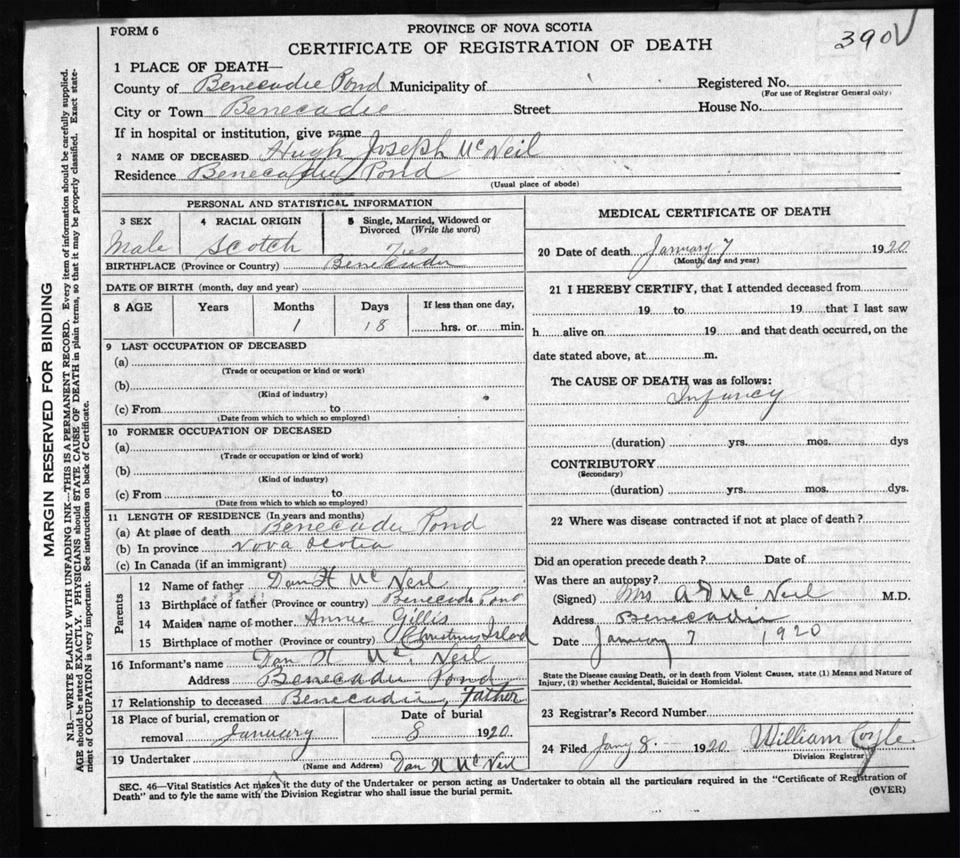 FORM 6
PROVINCE OF NOVA SCOTIA
390
CERTIFICATE OF REGISTRATION OF DEATH
1 PLACE OF DEATH—
County of Benecadie Pond Municipality of
Registered No.
(For use of Registrar General only)
City or Town Benecadie Street House No.
If in hospital or institution, give name
2 NAME OF DECEASED Hugh Joseph McNeil
Residence Benecadie Pond
(Usual place of abode)
PERSONAL AND STATISTICAL INFORMATION
3 SEX 4 RACIAL ORIGIN 5 Single, Married, Widowed or Divorced (Write the word)
Male Scotch
BIRTHPLACE (Province or Country) Benecadie
DATE OF BIRTH (month, day and year)
8 AGE Years Months Days If less than one day,
1 18 hrs. or min.
9 LAST OCCUPATION OF DECEASED
(a)
(Trade or occupation or kind or work)
(b)
(Kind of industry)
(c) From to
(Date from which to which so employed)
10 FORMER OCCUPATION OF DECEASED
(a)
(Trade or occupation or kind of work)
(b)
(Kind of industry)
(c) From to
(Date from which to which so employed)
11 LENGTH OF RESIDENCE (In years and months)
(a) At place of death Benecadie Pond
(b) In province Nova Scotia
(c) In Canada (if an immigrant)
Parents
12 Name of father Dan H McNeil
13 Birthplace of father (Province or country) Benecadie Pond
14 Maiden name of mother Annie Gillis
15 Birthplace of mother (Province or country) Christmas Island
16 Informant's name Dan H McNeil
Address Benecadie Pond
17 Relationship to deceased Benecadie, Father
18 Place of burial, cremation or removal Date of burial
January 8 1920
19 Undertaker Dan H McNeil
(Name and Address)
MEDICAL CERTIFICATE OF DEATH
20 Date of death January 7 1920
(Month, day and year)
21 I HEREBY CERTIFY, that I attended deceased from
19 to 19 that I last saw
h alive on 19 and that death occurred, on the
date stated above, at m.
The CAUSE OF DEATH was as follows:
Infancy
(duration) yrs. mos. dys
CONTRIBUTORY
(Secondary)
(duration) yrs. mos. dys.
22 Where was disease contracted if not at place of death?
Did an operation precede death? Date of
Was there an autopsy?
(Signed) Mrs A McNeil M.D.
Address Benecadie
Date January 7 1920
State the Disease causing Death, or in death from Violent Causes, state (1) Means and Nature of
Injury, (2) whether Accidental, Suicidal or Homicidal.
23 Registrar's Record Number
24 Filed Jany 8 1920 William Coyle
Division Registrar
SEC. 46—Vital Statistics Act makes it the duty of the Undertaker or person acting as Undertaker to obtain all the particulars required in the "Certificate of Registration of
Death" and to fyle the same with the Division Registrar who shall issue the burial permit.
(OVER)
MARGIN RESERVED FOR BINDING
N.B.—WRITE PLAINLY WITH UNFADING INK—THIS IS A PERMANENT RECORD. Every item of information should be carefully supplied.
AGE should be stated EXACTLY. PHYSICIANS should STATE CAUSE OF DEATH in plain terms, so that it may be properly classified. Exact state-
ment of OCCUPATION is very important. See instructions on back of Certificate.